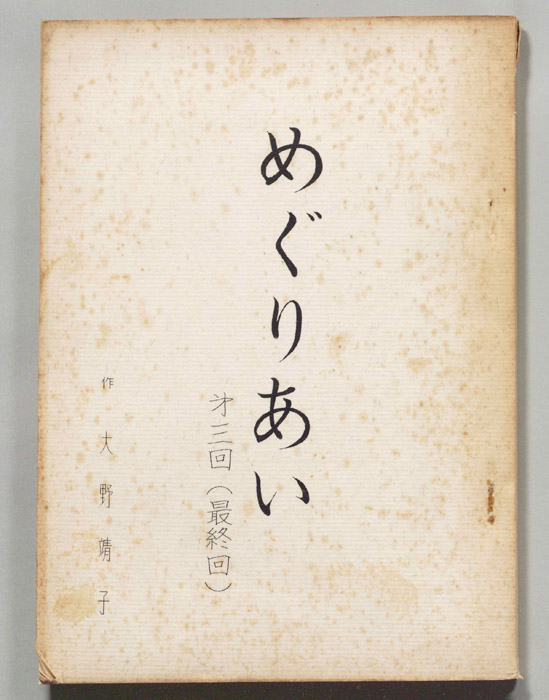 めぐりあい
㐧三回（最終回）
作 大野靖子